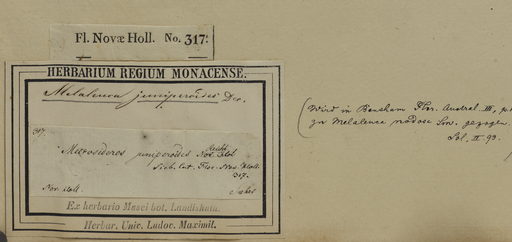 Fl. Novæ Holl. No. 317.
HERBARIUM REGIUM MONACENSE.
Melaleuca juniperoides Dec.
317.
Metrosideros juniperoides Reichb
Nov. Holl.
Sieb. cat. Flor. Nov. Holl.
317.
Nov. Holl.
Ex herbario Musei bot. Landishuta.
Herbar. Univ. Ludov. Maximil.
(Wird in Bentham Flor. Austral. III,
zu Melaleuca nodosa Sm. gezogen.
Sol. II 93.